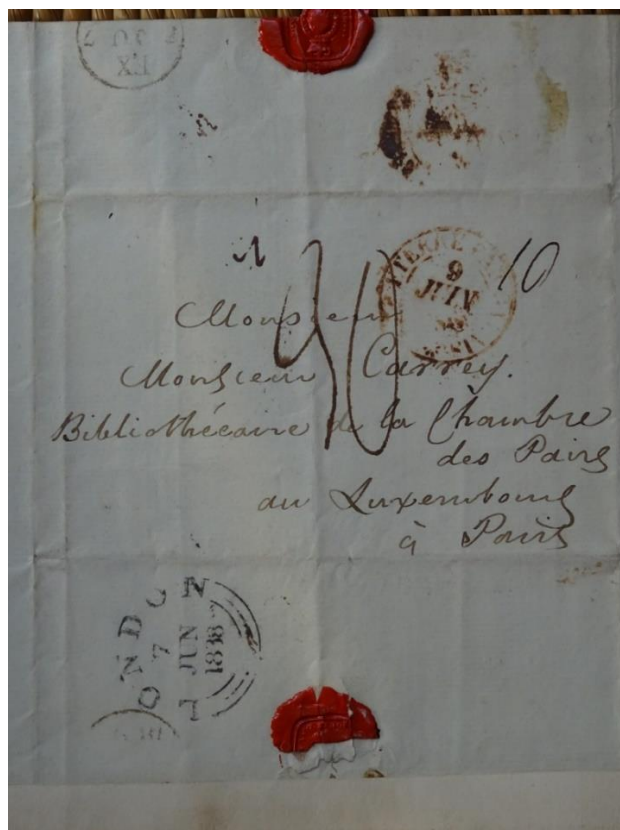 10
9
JUIN
30
Monsieur
Monsieur Carrey.
Bibliothécaire de la Chambre
des Pairs
au Luxembourg
à Paris
LONDON
7
JUN
1838